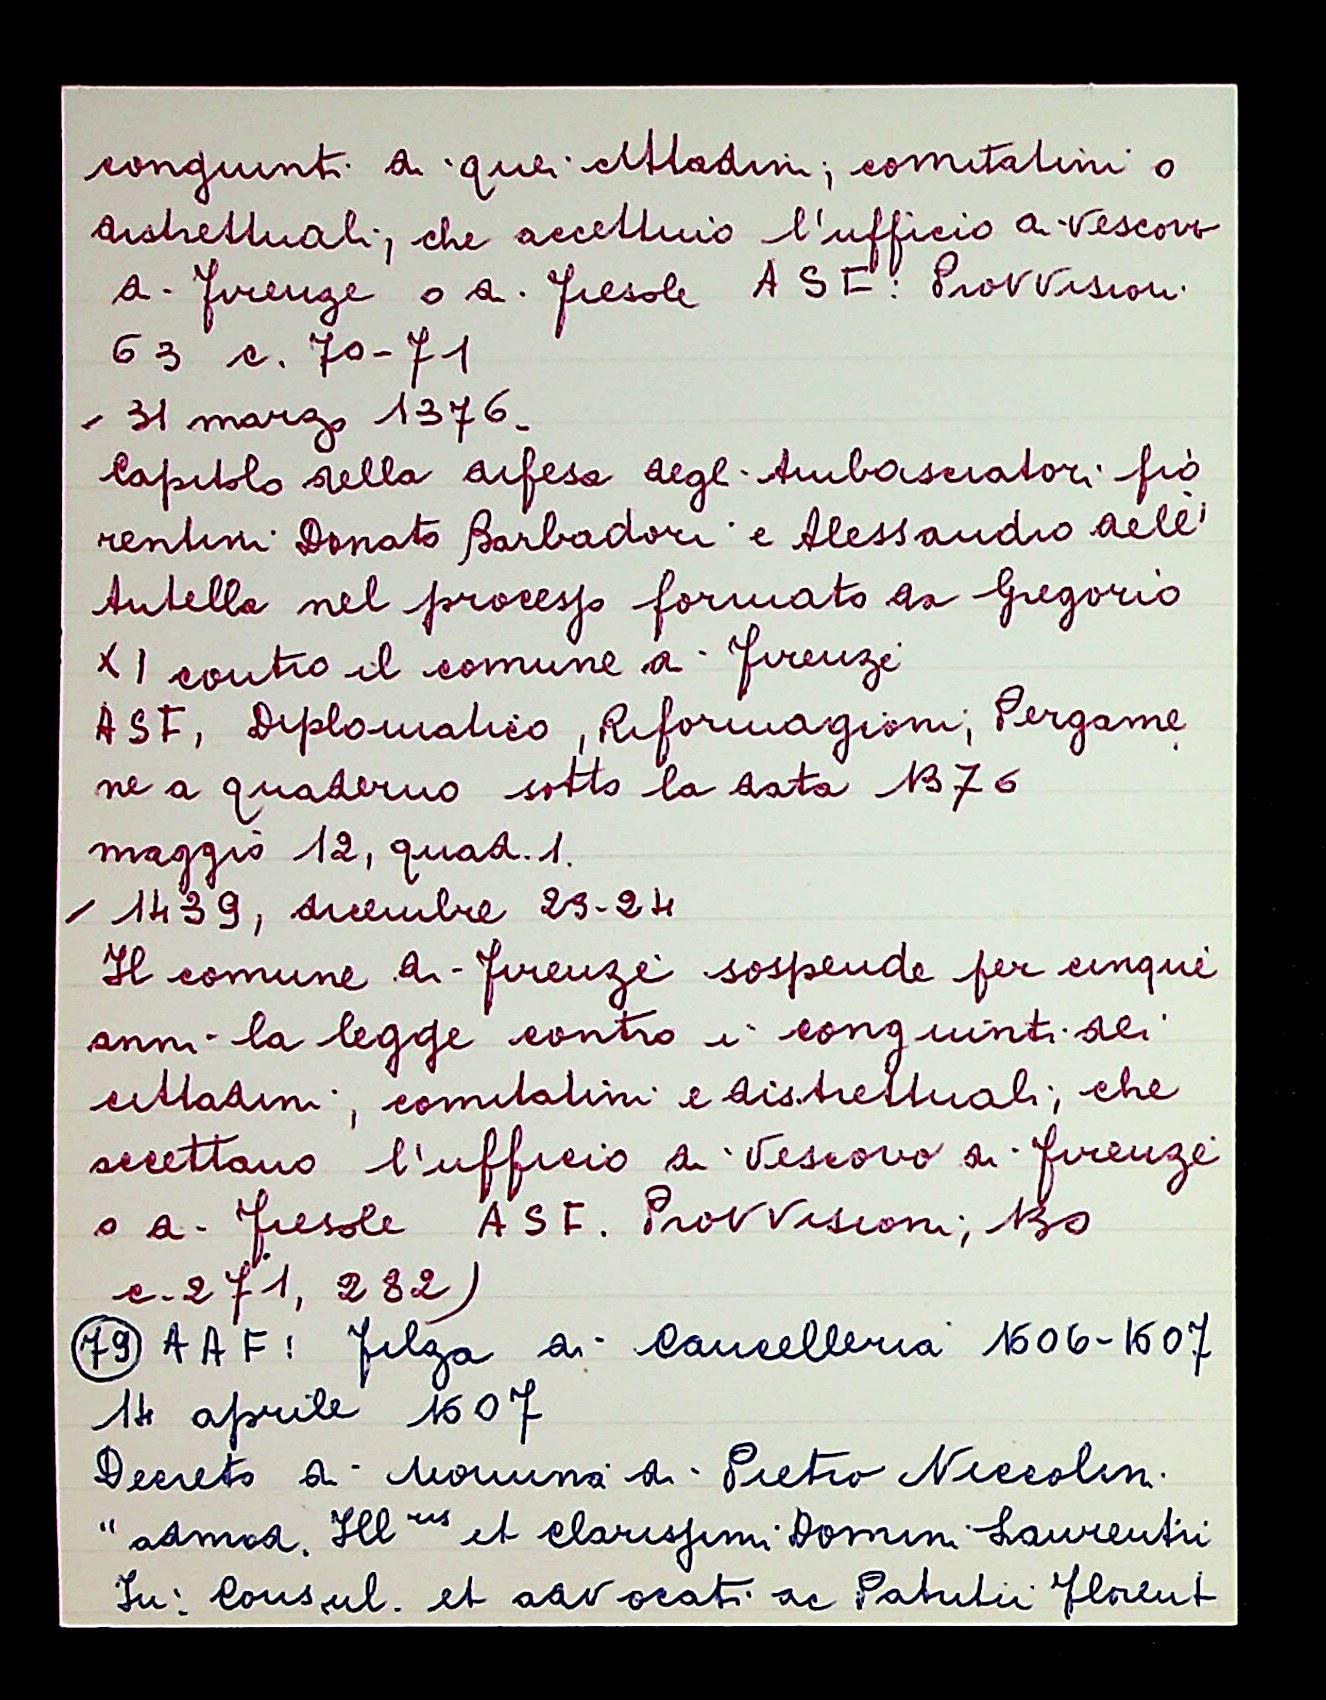 congiunti di quei cittadini, comitatini o
distrettuali, che accettino l'ufficio di Vescovo
di Firenze o di Fiesole ASF: Provvisioni
63 c. 70-71
- 31 marzo 1376.
Capitolo della difesa degli Ambasciatori fio
rentini Donato Barbadori e Alessandro dell'
Antella nel processo formato da Gregorio
XI contro il comune di Firenze
ASF, Diplomatico, Riformagioni, Pergame
ne a quaderno sotto la data 1376
maggio 12, quad. 1.
- 1439, dicembre 23-24
Il comune di Firenze sospende per cinque
anni la legge contro i congiunti dei
cittadini, comitatini e distrettuali, che
accettano l'ufficio di Vescovo di Firenze
o di Fiesole ASF. Provvisioni, 130
c. 271, 282)
79 AAF: Filza di Cancelleria 1606-1607
14 aprile 1607
Decreto di nomina di Pietro Niccolini
"admod. Ill^us et clarissimi Domini Laurentii
Iu: Consul. et advocati ac Patritii Florent